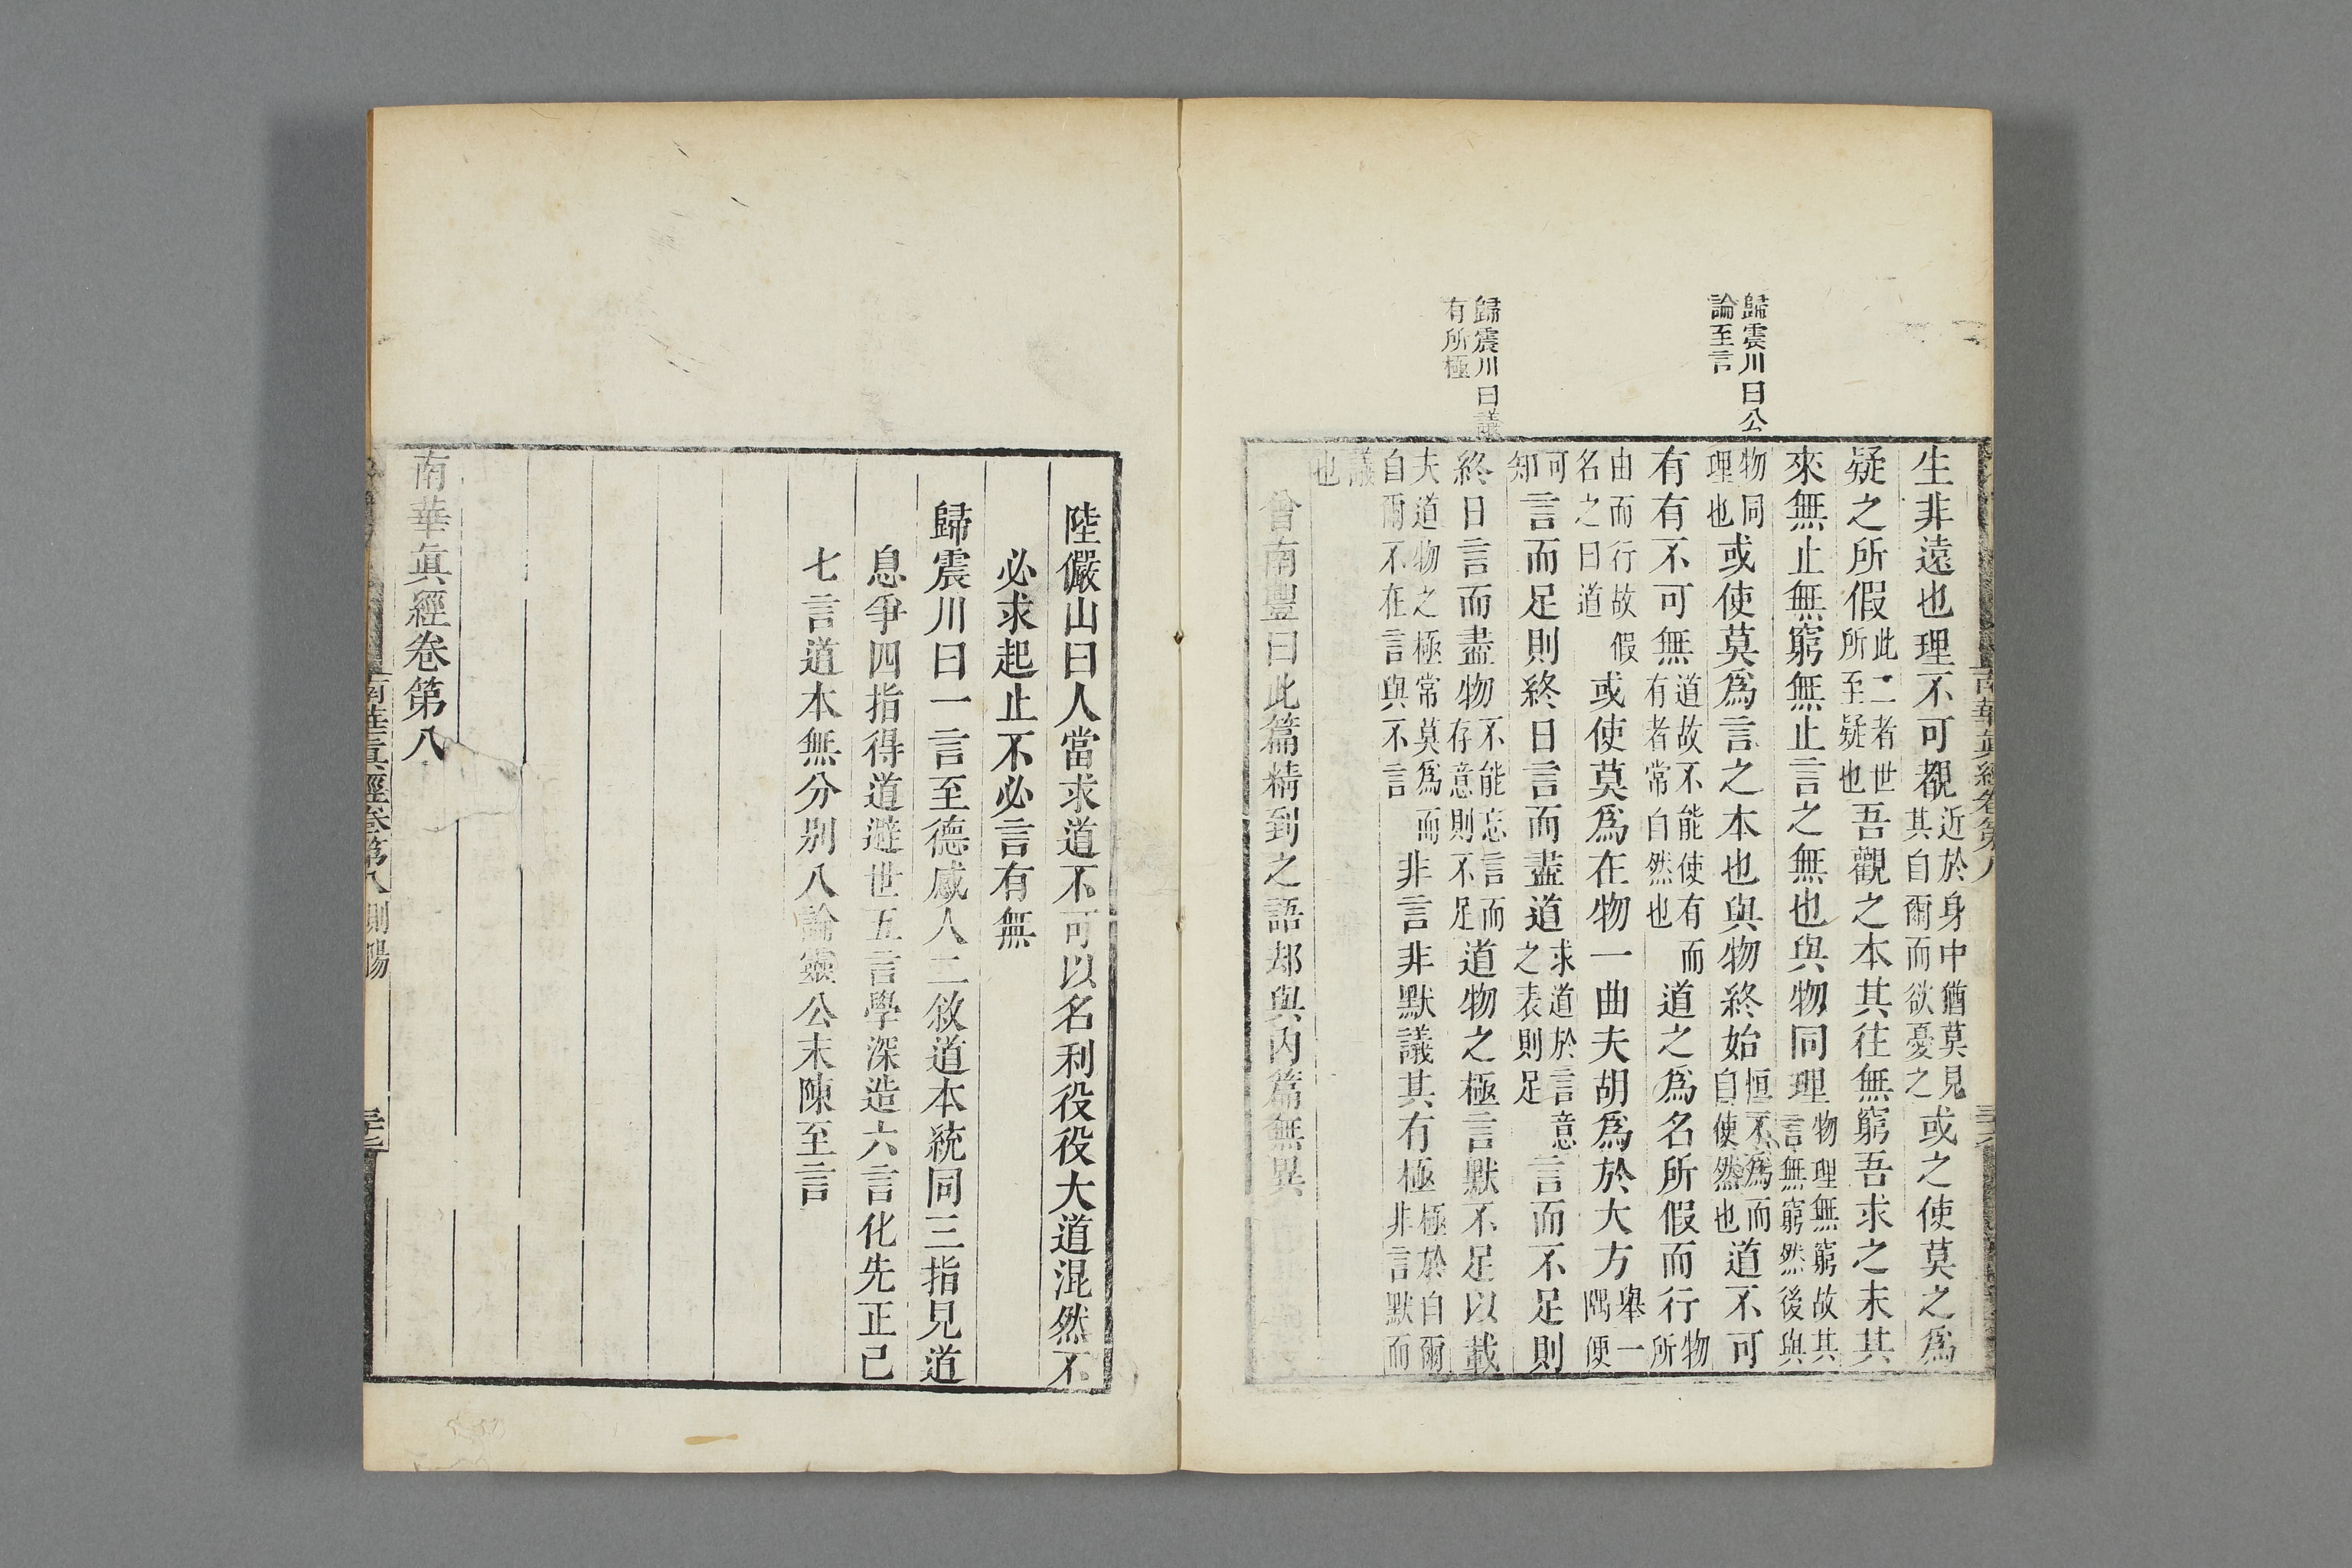 歸震川曰公
論至言
歸震川曰議
有所極
生非遠也理不可覩近於身中猶莫見其自爾而欲憂之或之使莫之爲
疑之所假此二者世所至疑也吾觀之本其往無窮吾求之末其
來無止無窮無止言之無也與物同理物理無窮故其言無窮然後與
物同理也或使莫爲言之本也與物終始恒不爲而自使然也道不可
有有不可無道故不能使有而有者常自然也道之爲名所假而行物所
由而行故假名之曰道或使莫爲在物一曲夫胡爲於大方舉一隅便
可知言而足則終日言而盡道求道於言意之表則足言而不足則
終日言而盡物不能忘言而存意則不足道物之極言默不足以載
夫道物之極常莫爲而自爾不在言與不言非言非默議其有極極於自爾非言默而
議也
曾南豐曰此篇精到之語却與內篇無異
南華眞經卷第八
三十六
陸儼山曰人當求道不可以名利役役大道混然不
必求起止不必言有無
歸震川曰一言至德感人二敘道本統同三指見道
息爭四指得道避世五言學深造六言化先正己
七言道本無分別八論靈公末陳至言
南華眞經卷第八
南華眞經卷第八 則陽
三十七